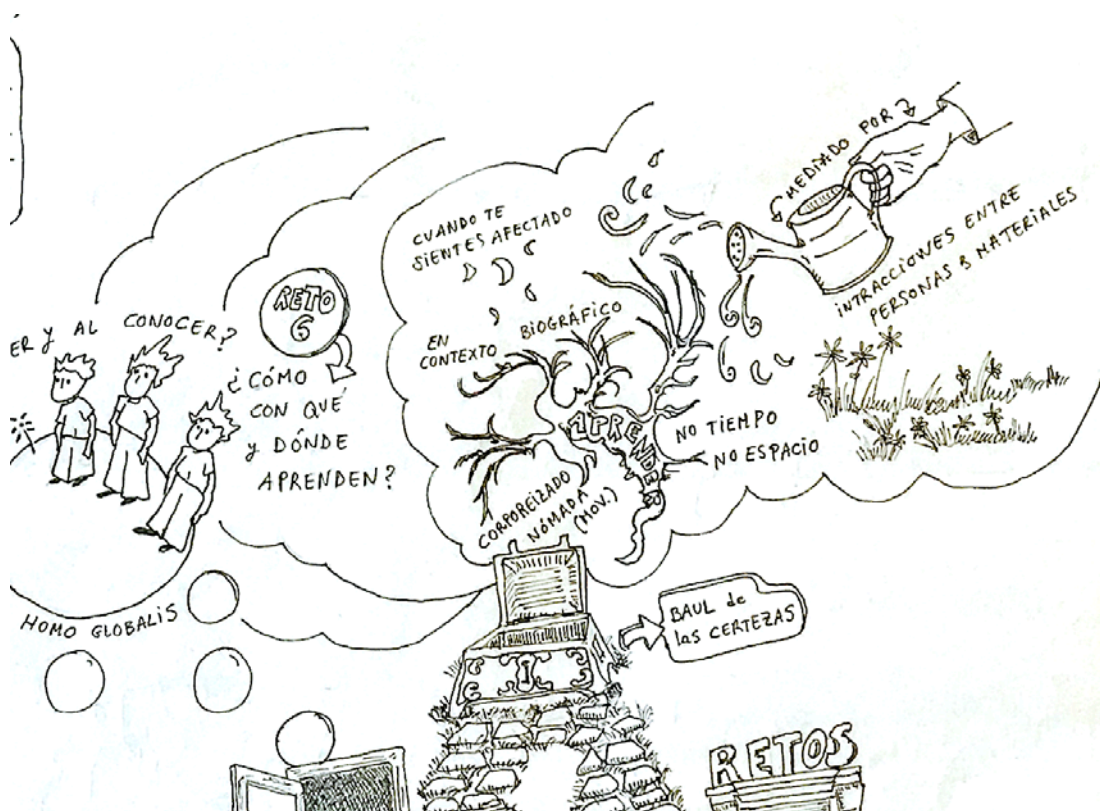 ER y AL CONOCER?
HOMO GLOBALIS
RETO
6
¿CÓMO
CON QUÉ
y DÓNDE
APRENDEN?
CUANDO TE
SIENTES AFECTADO
EN
CONTEXTO
BIOGRÁFICO
APRENDER
NO TIEMPO
NO ESPACIO
CORPOREIZADO
NÓMADA
(MOV.)
MEDIADO POR
INTRACCIONES ENTRE
PERSONAS & MATERIALES
BAUL de
las CERTEZAS
RETOS